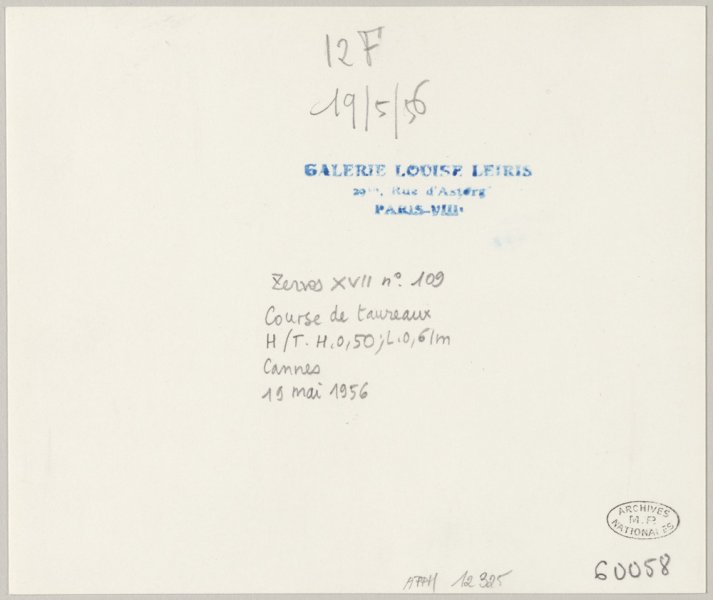 12F
19/5/56
GALERIE LOUISE LEIRIS
29bis, Rue d'Astorg
PARIS-VIIIe
Zervos XVII n°. 109
Course de taureaux
H/T. H.0,50; L.0,61m
Cannes
19 mai 1956
ARCHIVES
M.P.
NATIONALES
60058
APPH 12325